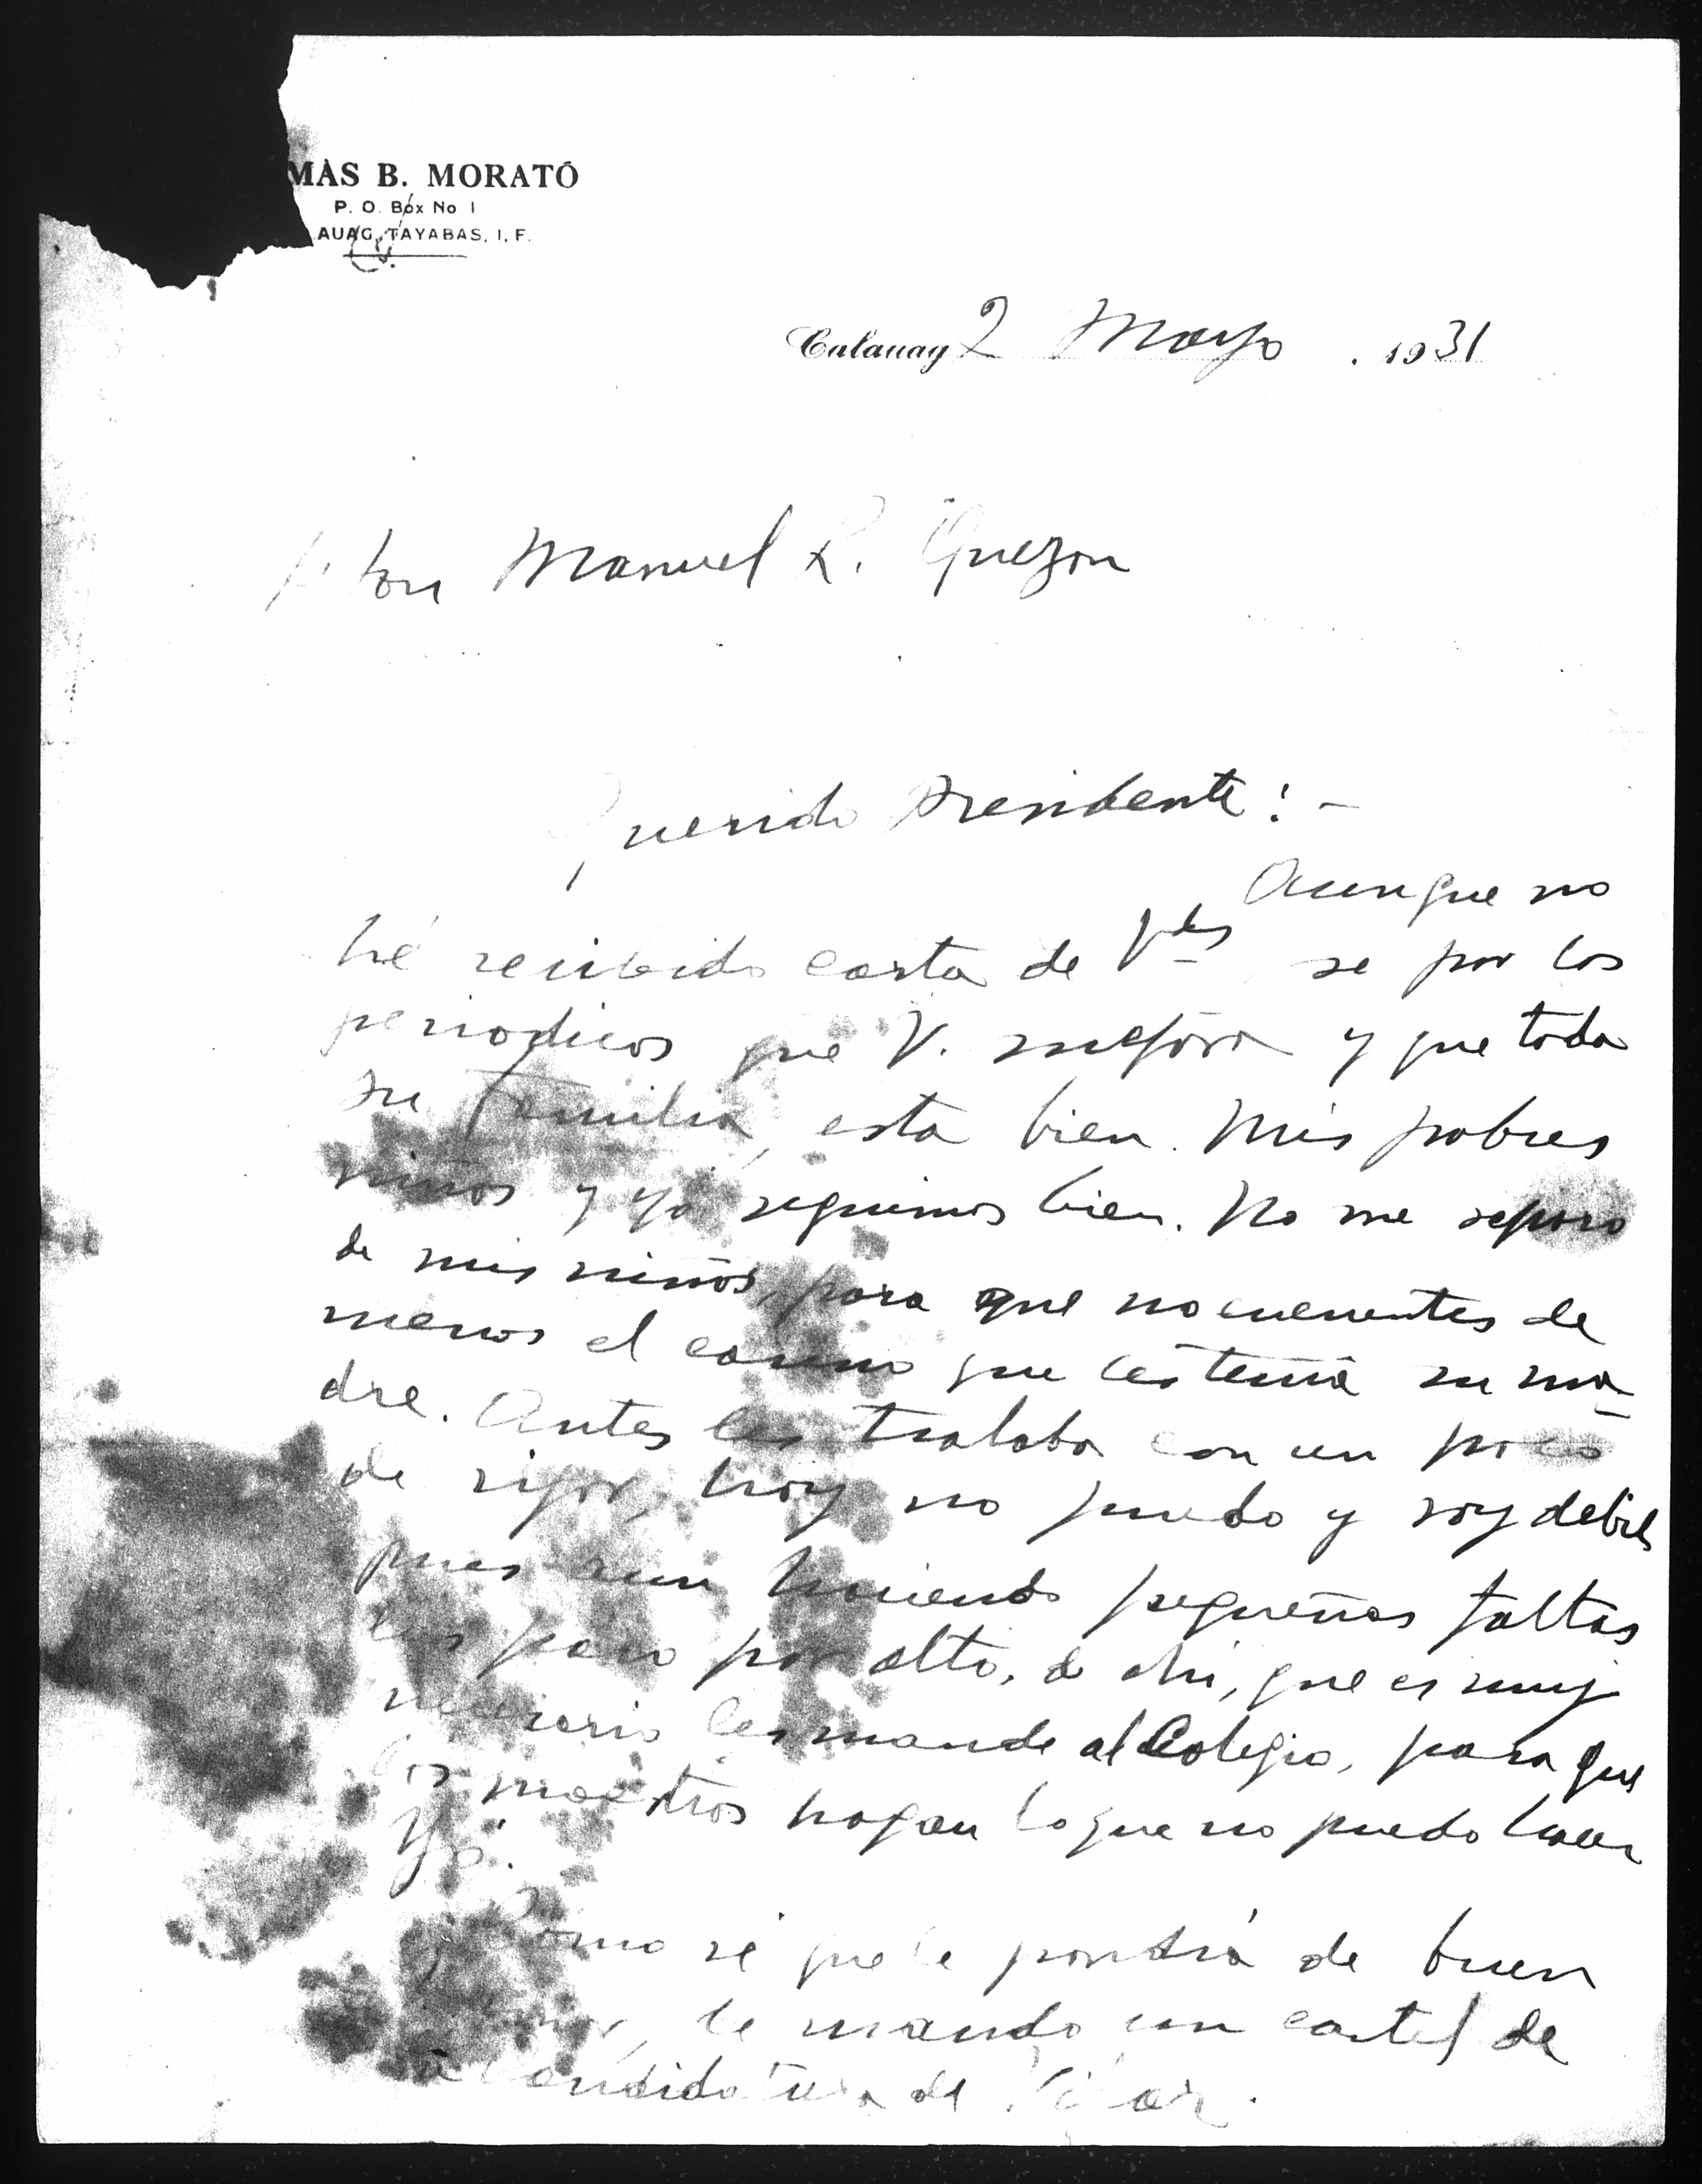 MÀS B. MORATÓ
P. O. Box No 1
AUAG, TAYABAS, I. F.
Calauag 2 Mayo . 1931
Hon Manuel L. Quezon
Querido Presidente! —
Aunque no
hé recibido carta de Vdes se por los
periodicos que V. mejora y que toda
su familia, esta bien. Mis pobres
niños y yo seguimos bien. No me separo
de mis niños, para que no encuentes de
menos el cariño que les tenia su ma-
dre. Antes les trataba con un poco
de rigor, hoy no puedo y soy debil
pues aun haciendo pequeñas faltas
los paso por alto, de ahi, que es muy
necesario les mande al Colegio, para que
los maestros hagan lo que no puedo hacer
Yo.
Como sé que le pondrá de buen
le mando un cartel de
la candidatura de